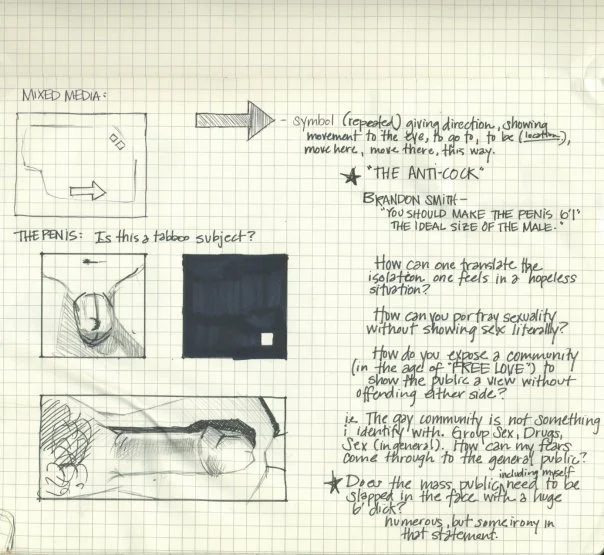 MIXED MEDIA:
- symbol (repeated) giving direction, showing
movement to the eye, to go to, to be (location),
move here, move there, this way.
★ "THE ANTI-COCK"
BRANDON SMITH-
"YOU SHOULD MAKE THE PENIS 6'1"
THE IDEAL SIZE OF THE MALE."
THE PENIS: Is this a tabboo subject?
How can one translate the
isolation one feels in a hopeless
situation?
How can you portray sexuality
without showing sex literally?
How do you expose a community
(in the age of "FREE LOVE") to
show the public a view without
offending either side?
ie. The gay community is not something
i identify with. Group Sex, Drugs,
Sex (in general). How can my fears
come through to the general public?
including myself
★ Does the mass public, need to be
slapped in the face with a huge
6' dick?
humerous, but some irony in
that statement.